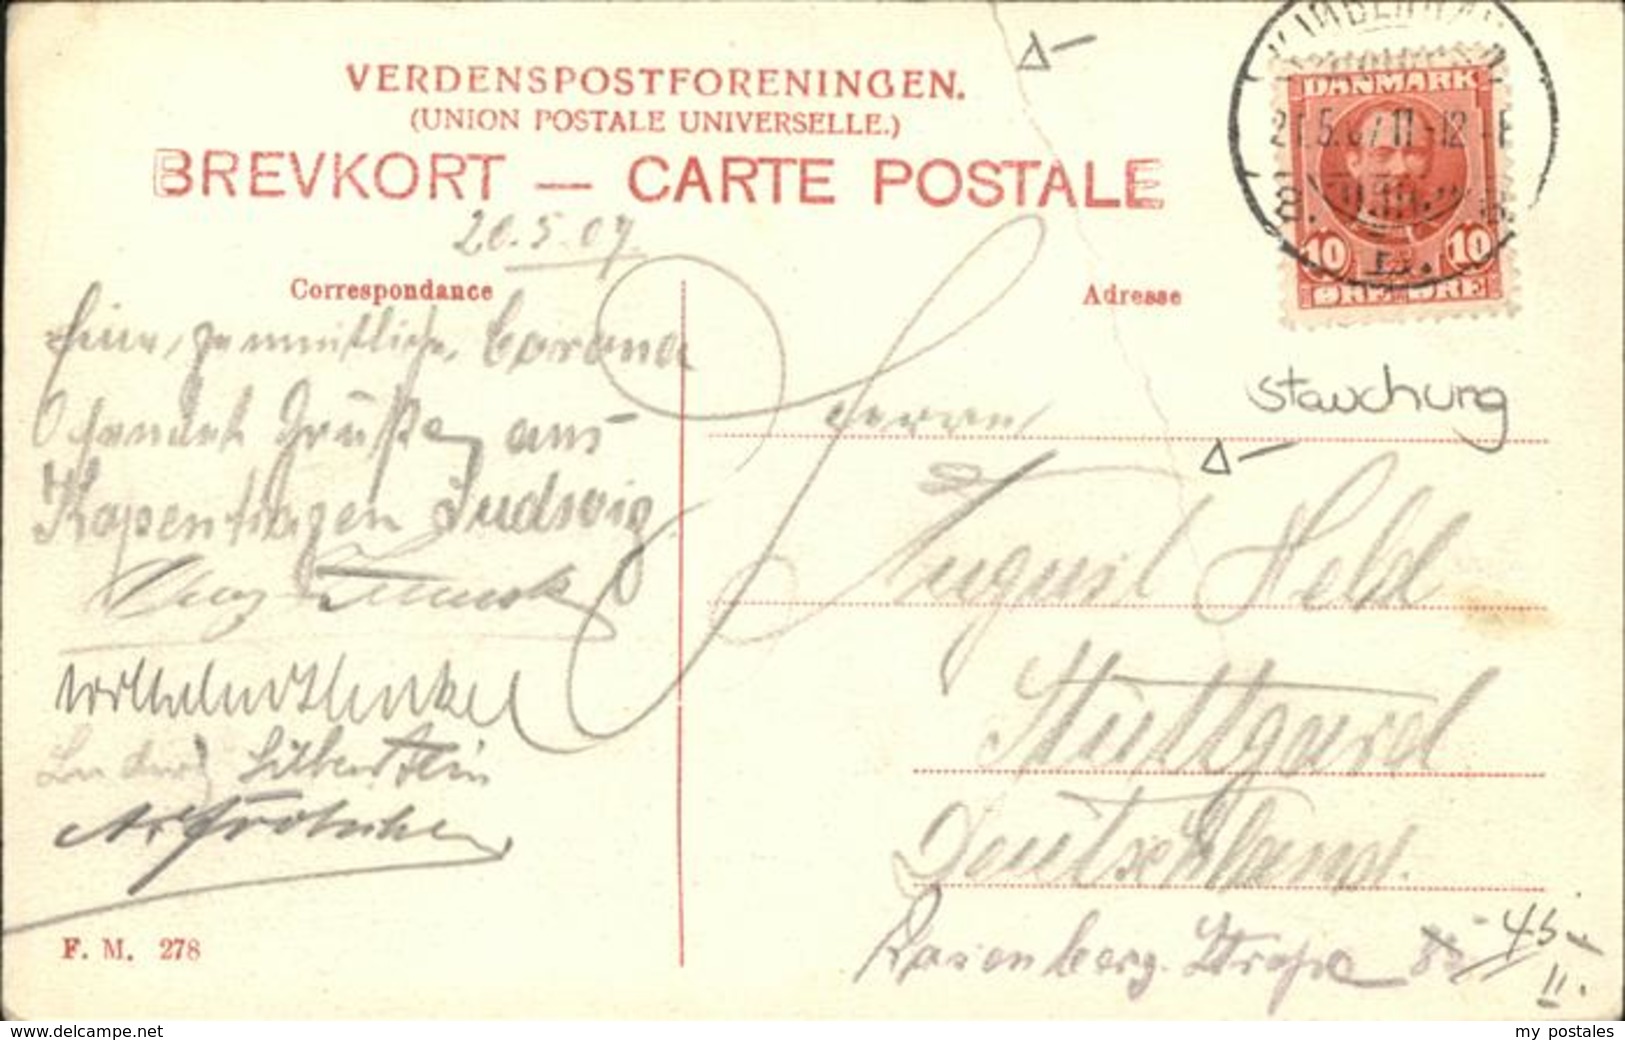 VERDENSPOSTFORENINGEN.
(UNION POSTALE UNIVERSELLE.)
BREVKORT — CARTE POSTALE
20.5.07
Correspondance
Adresse
DANMARK
21.5.07 11-12 E
10 10
ØRE ØRE
Stauchung
Eine gemmütliche Corona
sendet Grüße aus
Kopenhagen Ludwig
Wilhelm
Ludwig Silberstein
Herrn
August Held
Stuttgard
Deutschland.
Rosenberg. Straße 45
II.
F. M. 278
www.delcampe.net
my postales